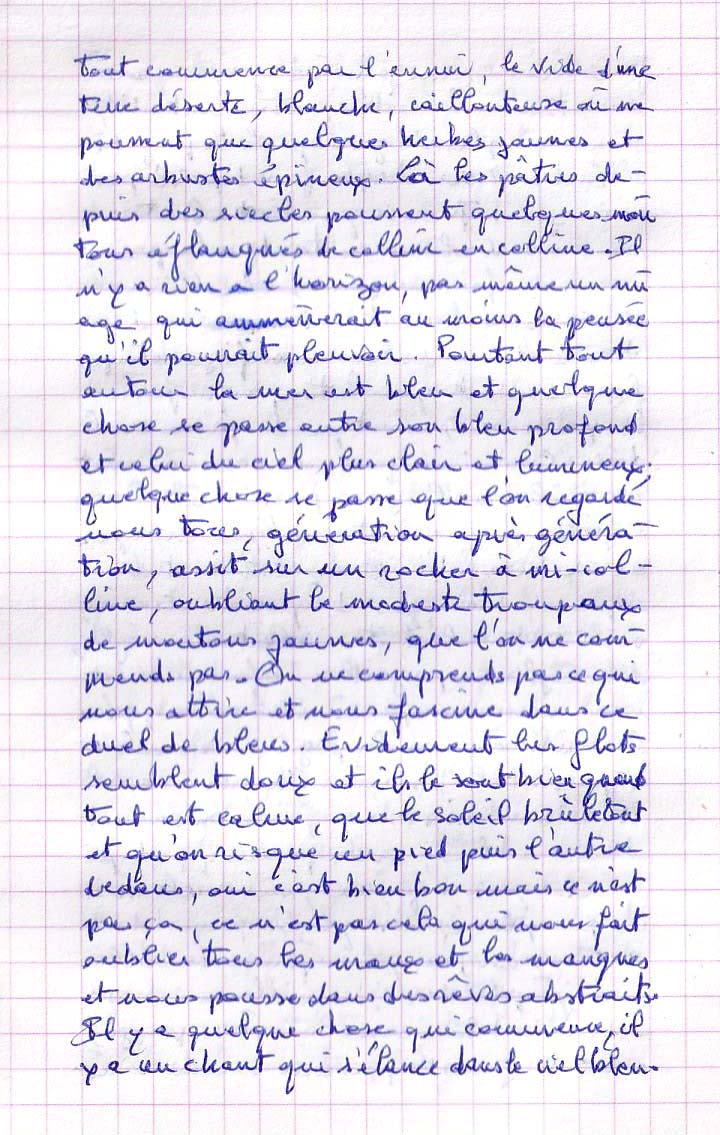 tout commence par l'ennui, le vide d'une
terre déserte, blanche, caillouteuse où ne
poussent que quelques herbes jaunes et
des arbustes épineux. Là les pâtres de-
puis des siecles poussent quelques mou
tons éflanqués de colline en colline. Il
n'y a rien a l'horizon, pas même un nu
age qui ammènerait au moins la pensée
qu'il pourrait pleuvoir. Pourtant tout
autour la mer est bleu et quelque
chose se passe entre son bleu profond
et celui du ciel plus clair et lumineux;
quelque chose se passe que l'on regarde
nous tous, génération après généra-
tion, assit sur un rocher à mi-col-
line, oubliant le modeste troupeaux
de moutons jaunes, que l'on ne com
prends pas. On ne comprends pas ce qui
nous attire et nous fascine dans ce
duel de bleus. Evidement les flots
semblent doux et ils le sont bien quand
tout est calme, que le soleil brûle tout
et qu'on risque un pied puis l'autre
dedans, oui c'est bien bon mais ce n'est
pas ça, ce n'est pas cela qui nous fait
oublier tous les maux et les manques
et nous pousse dans des rêves abstraits.
Il y a quelque chose qui commence, il
y a un chant qui s'élance dans le ciel bleu.